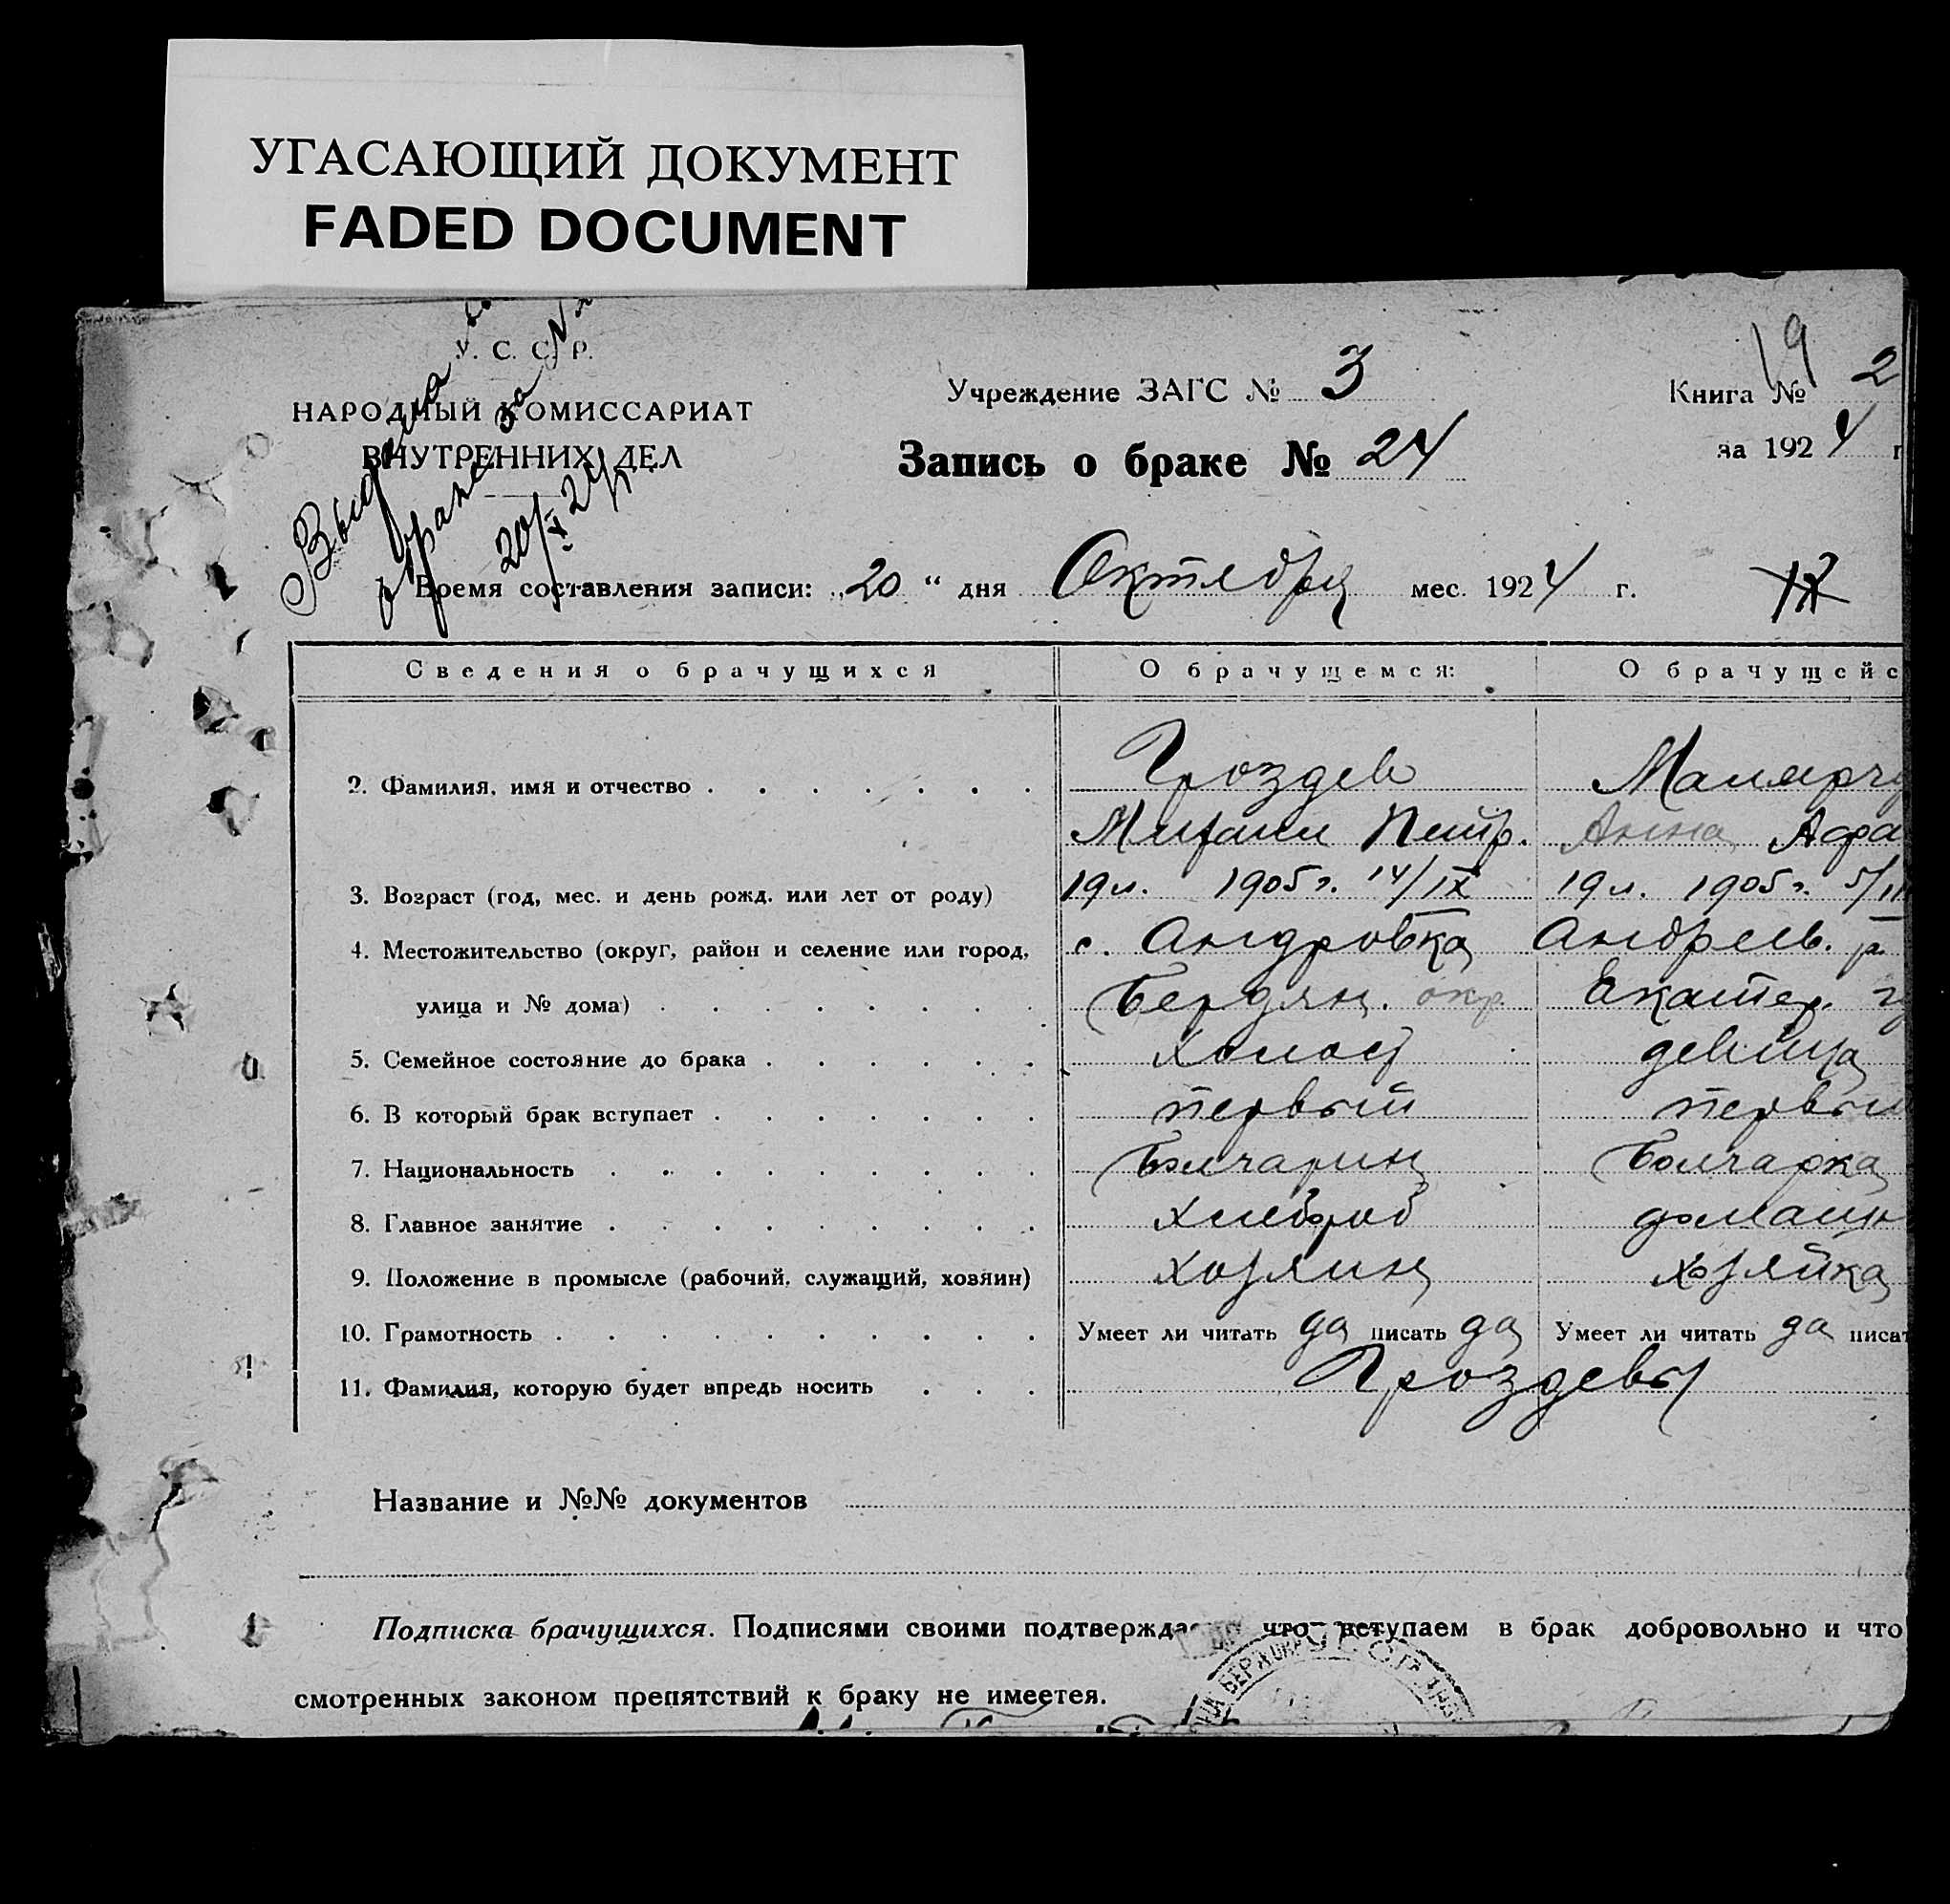 УГАСАЮЩИЙ ДОКУМЕНТ
FADED DOCUMENT
У. С. С. Р.
НАРОДНЫЙ КОМИССАРИАТ
ВНУТРЕННИХ ДЕЛ
о браке за №
20/X 24 г.
19
Учреждение ЗАГС № 3
Книга № 2
Запись о браке № 24
за 1924 г
Время составления записи: „20“ дня Октября мес. 1924 г.
Сведения о брачущихся О брачущемся: О брачущейс
2. Фамилия, имя и отчество Гроздев
Михаил Петр. Анна Афа
3. Возраст (год, мес. и день рожд. или лет от роду) 19 л. 1905 г. 14/IX 19 л. 1905 г. 5/II
4. Местожительство (округ, район и селение или город, с. Андровка Андреев. р.
улица и № дома) Бердян. окр. Екатер. г
5. Семейное состояние до брака холост девица
6. В который брак вступает первый первый
7. Национальность Болгарин Болгарка
8. Главное занятие хлебороб домашн
9. Положение в промысле (рабочий, служащий, хозяин) хозяин хозяйка
10. Грамотность Умеет ли читать да писать да Умеет ли читать да писат
11. Фамилия, которую будет впредь носить Гроздевы
Название и №№ документов
Подписка брачущихся. Подписями своими подтвержда что вступаем в брак добровольно и что
смотренных законом препятствий к браку не имеется.